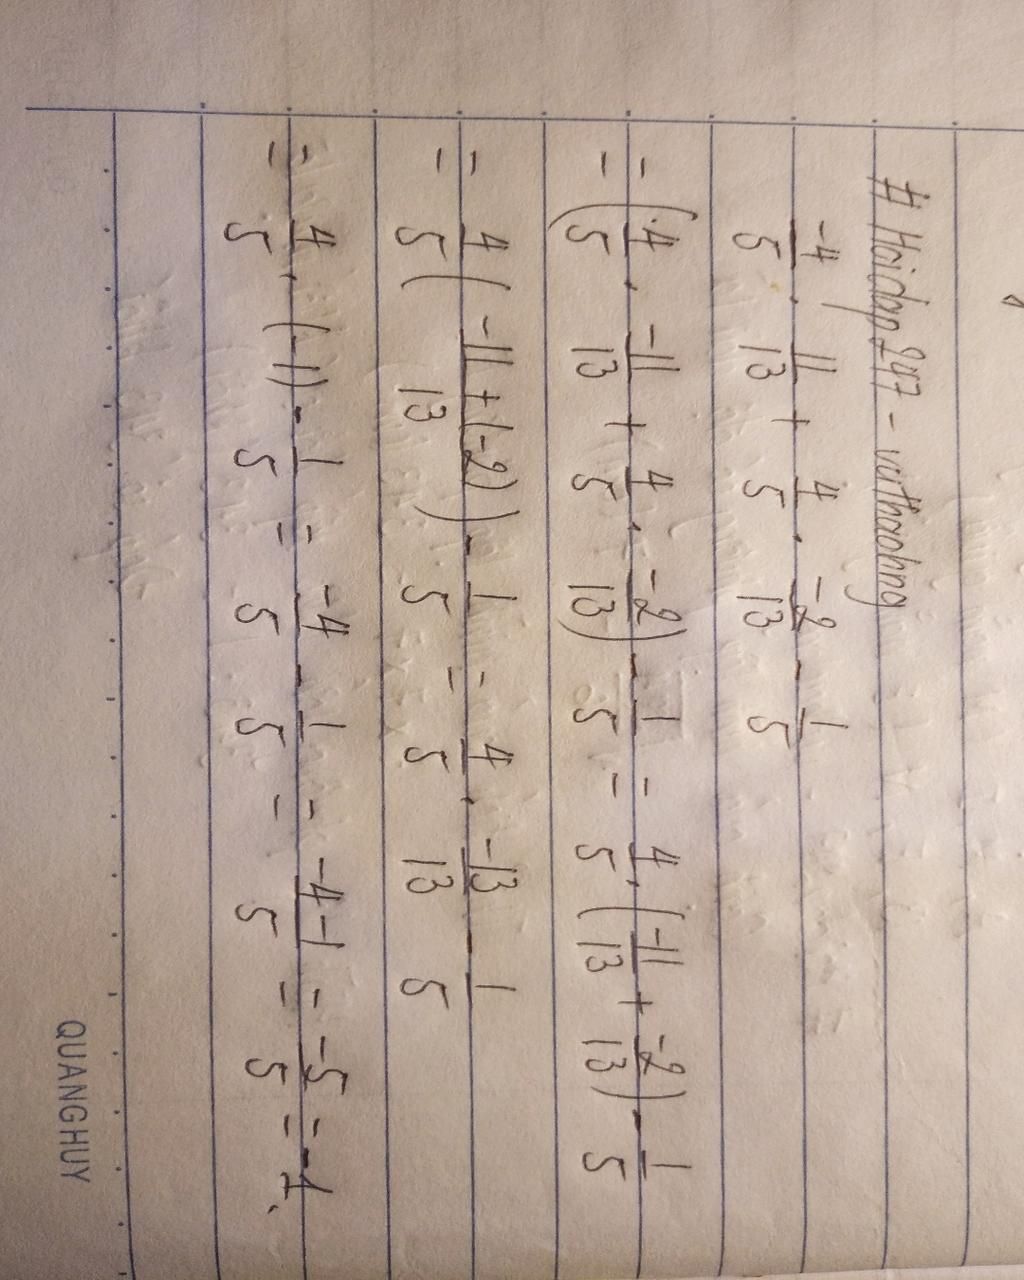 # Hoidap247 - vuthaohng
-4/5 . 11/13 + 4/5 . -2/13 - 1/5
= (4/5 . -11/13 + 4/5 . -2/13) - 1/5 = 4/5 . (-11/13 + -2/13) - 1/5
= 4/5 (-11+(-2)/13) - 1/5 = 4/5 . -13/13 - 1/5
= 4/5 . (-1) - 1/5 = -4/5 - 1/5 = -4-1/5 = -5/5 = -1.
QUANGHUY